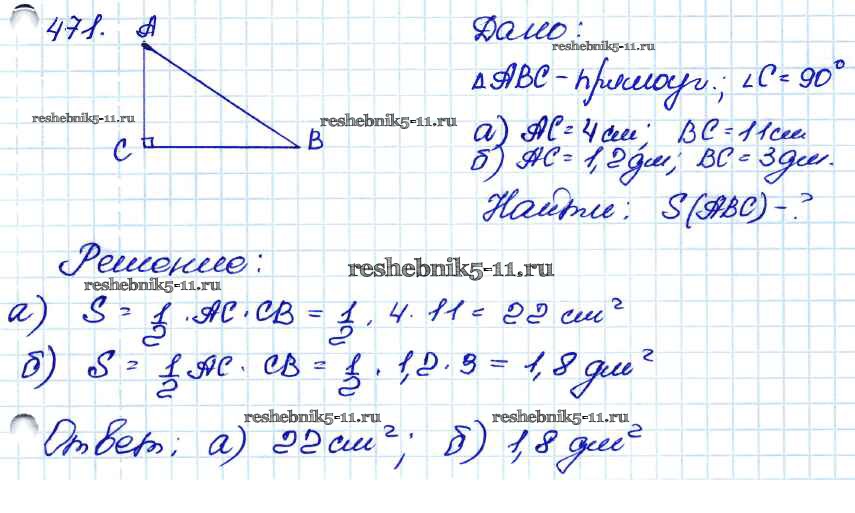 471. A
Дано:
reshebnik5-11.ru
△ABC - прямоуг.; ∠C = 90°
reshebnik5-11.ru
reshebnik5-11.ru
C B
а) AC = 4 см; BC = 11 см
б) AC = 1,2 дм; BC = 3 дм.
Найти: S(ABC) - ?
Решение:
reshebnik5-11.ru
reshebnik5-11.ru
а) S = 1/2 · AC · CB = 1/2 · 4 · 11 = 22 см²
б) S = 1/2 AC · CB = 1/2 · 1,2 · 3 = 1,8 дм²
reshebnik5-11.ru reshebnik5-11.ru
Ответ: а) 22 см²; б) 1,8 дм²